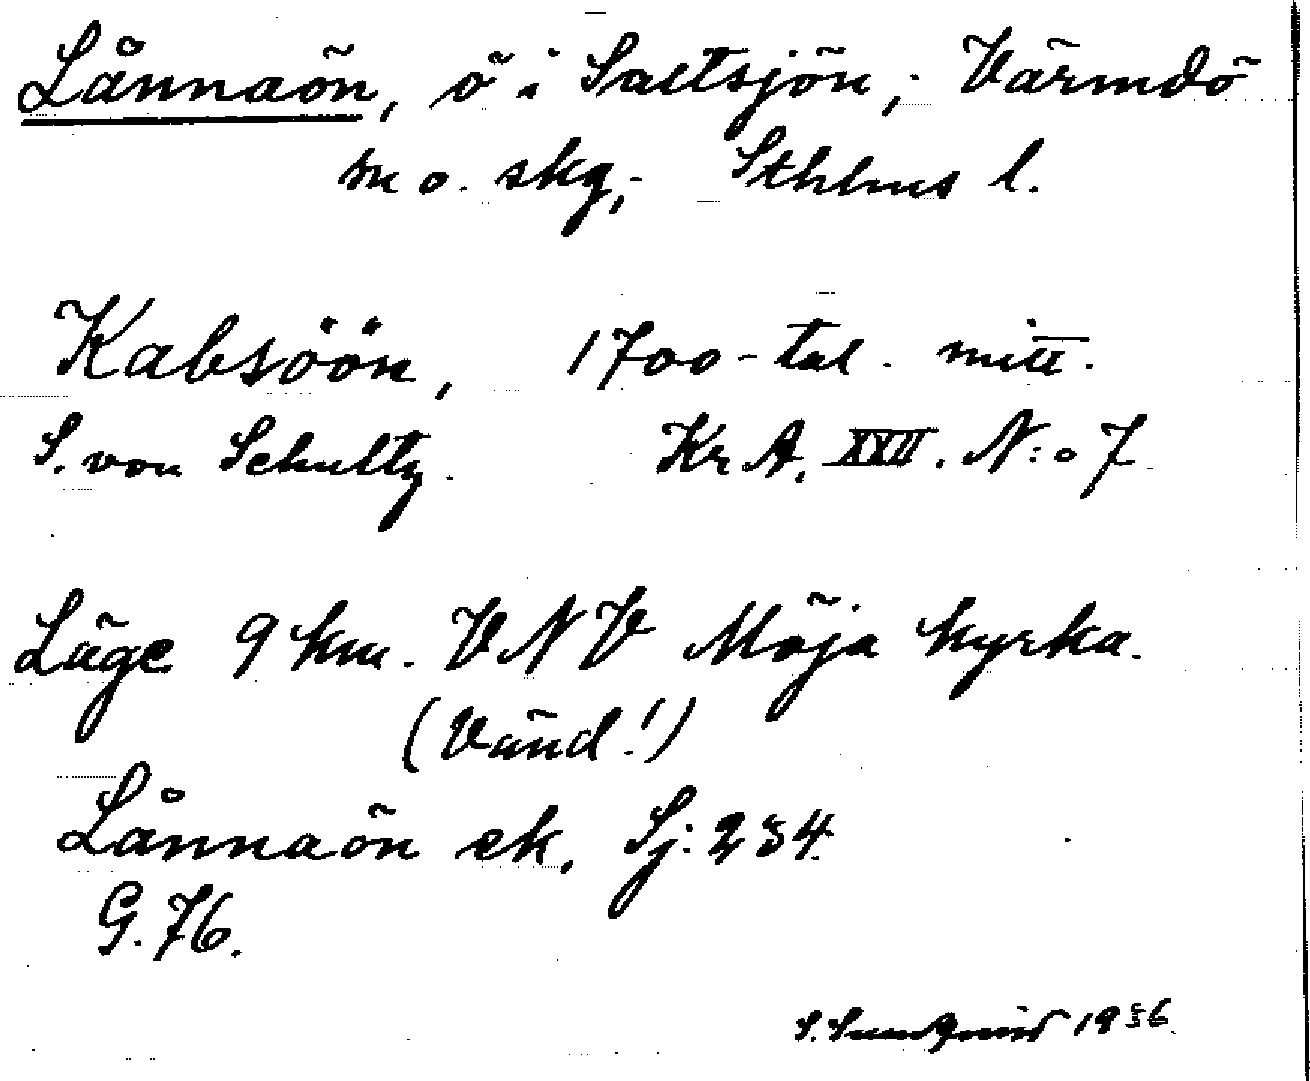 Lånnaön, ö i Saltsjön, Värmdö
sn o. skg, Sthlms l.
Kabsöön, 1700-tal. mitt.
S. von Schultz. Kr A. XXII. N:o 7
Läge 9 km. VNV Möja kyrka.
(Vänd!)
Lånnaön ek, Sj: 234
G. 76.
S. Sundqvist 1936